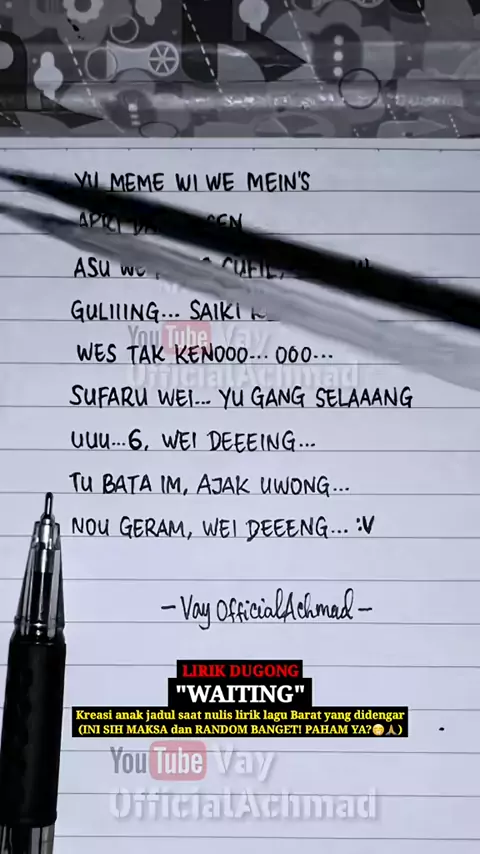 YU MEME WI WE MEIN'S
ASU WE
GULIIING... SAIKI
WES TAK KENOOO... OOO...
SUFARU WEI... YU GANG SELAAANG
UUU...6, WEI DEEEING...
TU BATA IM, AJAK UWONG...
NOU GERAM, WEI DEEENG... :V
-Vay OfficialAchmad-
LIRIK DUGONG
"WAITING"
Kreasi anak jadul saat nulis lirik lagu Barat yang didengar
(INI SIH MAKSA dan RANDOM BANGET! PAHAM YA?😁🙏)
YouTube Vay
OfficialAchmad
YouTube Vay
OfficialAchmad